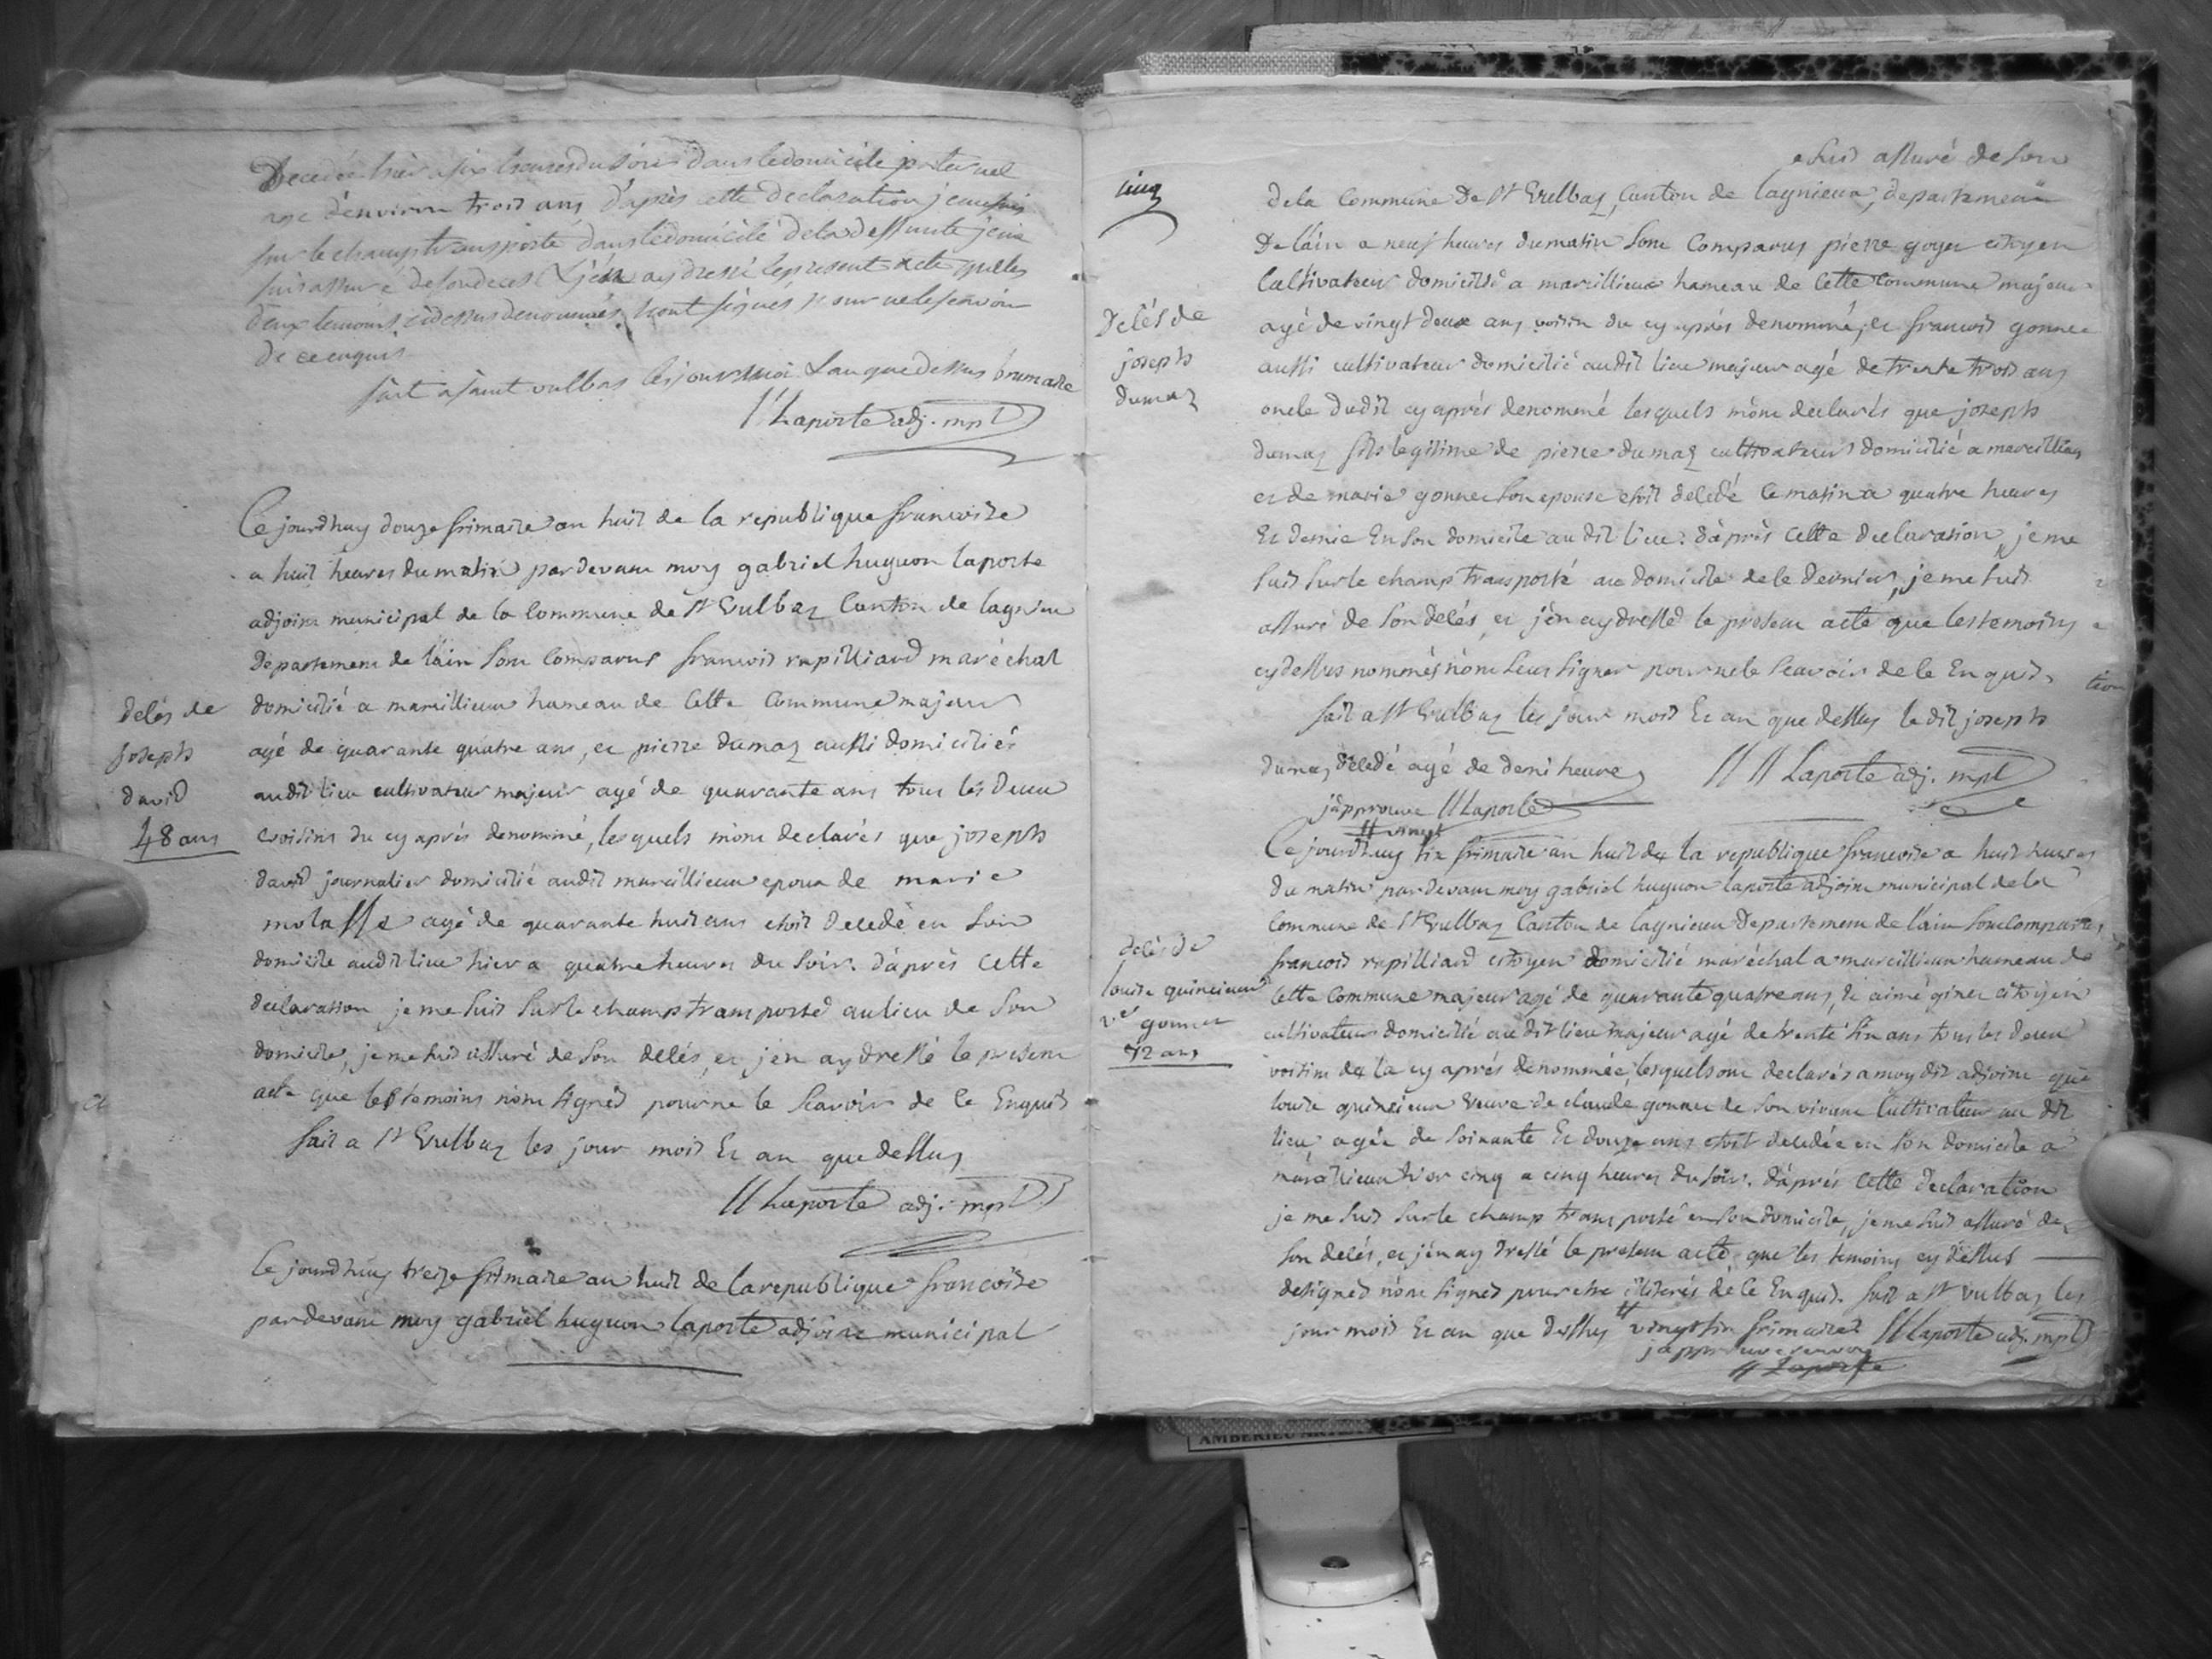 Decedée hier a six heures du soir dans le domicile paternel
age d'environ trois ans d'après cette declaration je me suis
sur le champ transporté dans le domicile de la deffunte je me
suis assuré de son deces & j'en ay dressé le present acte que les
deux temoins cidessus denommés n'ont signés pour ne le scavoir
de ce enquis
fait a saint vulbas les jour mois & an que dessus brumaire
H Laporte adj. mpl
Ce jourdhuy douze frimaire an huit de la republique francoise
a huit heures du matin pardevant moy gabriel huguon laporte
adjoint municipal de la Commune de St Vulbaz Canton de lagnieu
departement de l'ain sont Comparus francois rupilliard maréchal
domicilié a marcillieux hameau de Cette Commune majeur
agé de quarante quatre ans, et pierre dumaz aussi domiciliés
audit lieu cultivateur majeur agé de quarante ans tous les deux
voisins du cy après denommé, lesquels m'ont declarés que joseph
david journalier domicilié audit marcillieux epoux de marie
molasse agé de quarante huit ans etoit decedé en son
domicile audit lieu hier a quatre heures du soir. d'après cette
declaration je me suis sur le champ transporté au lieu de son
domicile, je me suis assuré de son delés, et j'en ay dressé le present
acte que les temoins n'ont signés pour ne le scavoir de ce Enquis
fait a St Vulbaz les jour mois Et an que dessus
H Laporte adj. mpl
delés de
joseph
david
48 ans
Ce jourdhuy treize frimaire an huit de la republique francoise
pardevant moy gabriel huguon laporte adjoint municipal
cinq
suis assuré de son
de la Commune de St Vulbaz, Canton de lagnieux, departement
de l'ain a neuf heures du matin sont Comparus pierre goyer citoyen
Cultivateur domicilié a marcillieux hameau de Cette Commune majeur
agé de vingt deux ans voisin du cy après denommé, et francois gonnet
aussi cultivateur domicilié audit lieu majeur agé de trente trois ans
oncle dudit cy après denommé lesquels m'ont declarés que joseph
dumaz fils legitime de pierre dumaz cultivateur domicilié a marcillieux
et de marie gonnet son epouse etoit decedé Ce matin a quatre heures
Et demie En son domicile audit lieu. d'après Cette declaration je me
suis sur le champ transporté au domicile de le dernier, je me suis
assuré de son delés, et j'en ay dressé le present acte que les temoins
cy dessus nommés n'ont sceu signer pour ne le scavoir de ce Enquis,
fait a St Vulbaz les jour mois Et an que dessus le dit joseph
dumaz decedé agé de demi heure H H Laporte adj. mpl
j'approuve H Laporte
Delés de
joseph
dumaz
H vingt
Ce jourdhuy six frimaire an huit de la republique francoise a huit heures
du matin pardevant moy gabriel huguon laporte adjoint municipal de la
Commune de St Vulbaz Canton de lagnieu departement de l'ain sont Comparus
francois rupilliard citoyen domicilié maréchal a marcillieux hameau de
Cette Commune majeur agé de quarante quatre ans, Et aimé giner citoyen
cultivateur domicilié audit lieu majeur agé de trente six ans tous les deux
voisins de la cy après denommée, lesquels ont declarés a moy dit adjoint que
louise quincieux veuve de claude gonnet de son vivant Cultivateur au dit
lieu, agée de soixante Et douze ans etoit decedée en son domicile a
marcillieux hier cinq a cinq heures du soir. d'après Cette declaration
je me suis sur le champ transporté en son domicile, je me suis assuré de
son delés, et j'en ay dressé le present acte que les temoins cy dessus
designés n'ont signés pour etre illiterés de ce Enquis. fait a St vulbaz les
jour mois Et an que dessus H vingt six frimaire H Laporte adj. mpl
j'approuve renvoy
H Laporte
delés de
louise quincieux
ve gonnet
72 ans